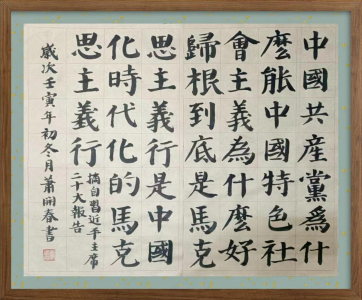 中國共産黨爲什
麽能中國特色社
會主義為什麽好
歸根到底是馬克
思主義行是中國
化時代化的馬克
思主義行
摘自習近平主席
二十大報告
歲次壬寅年初冬月蕭開春書